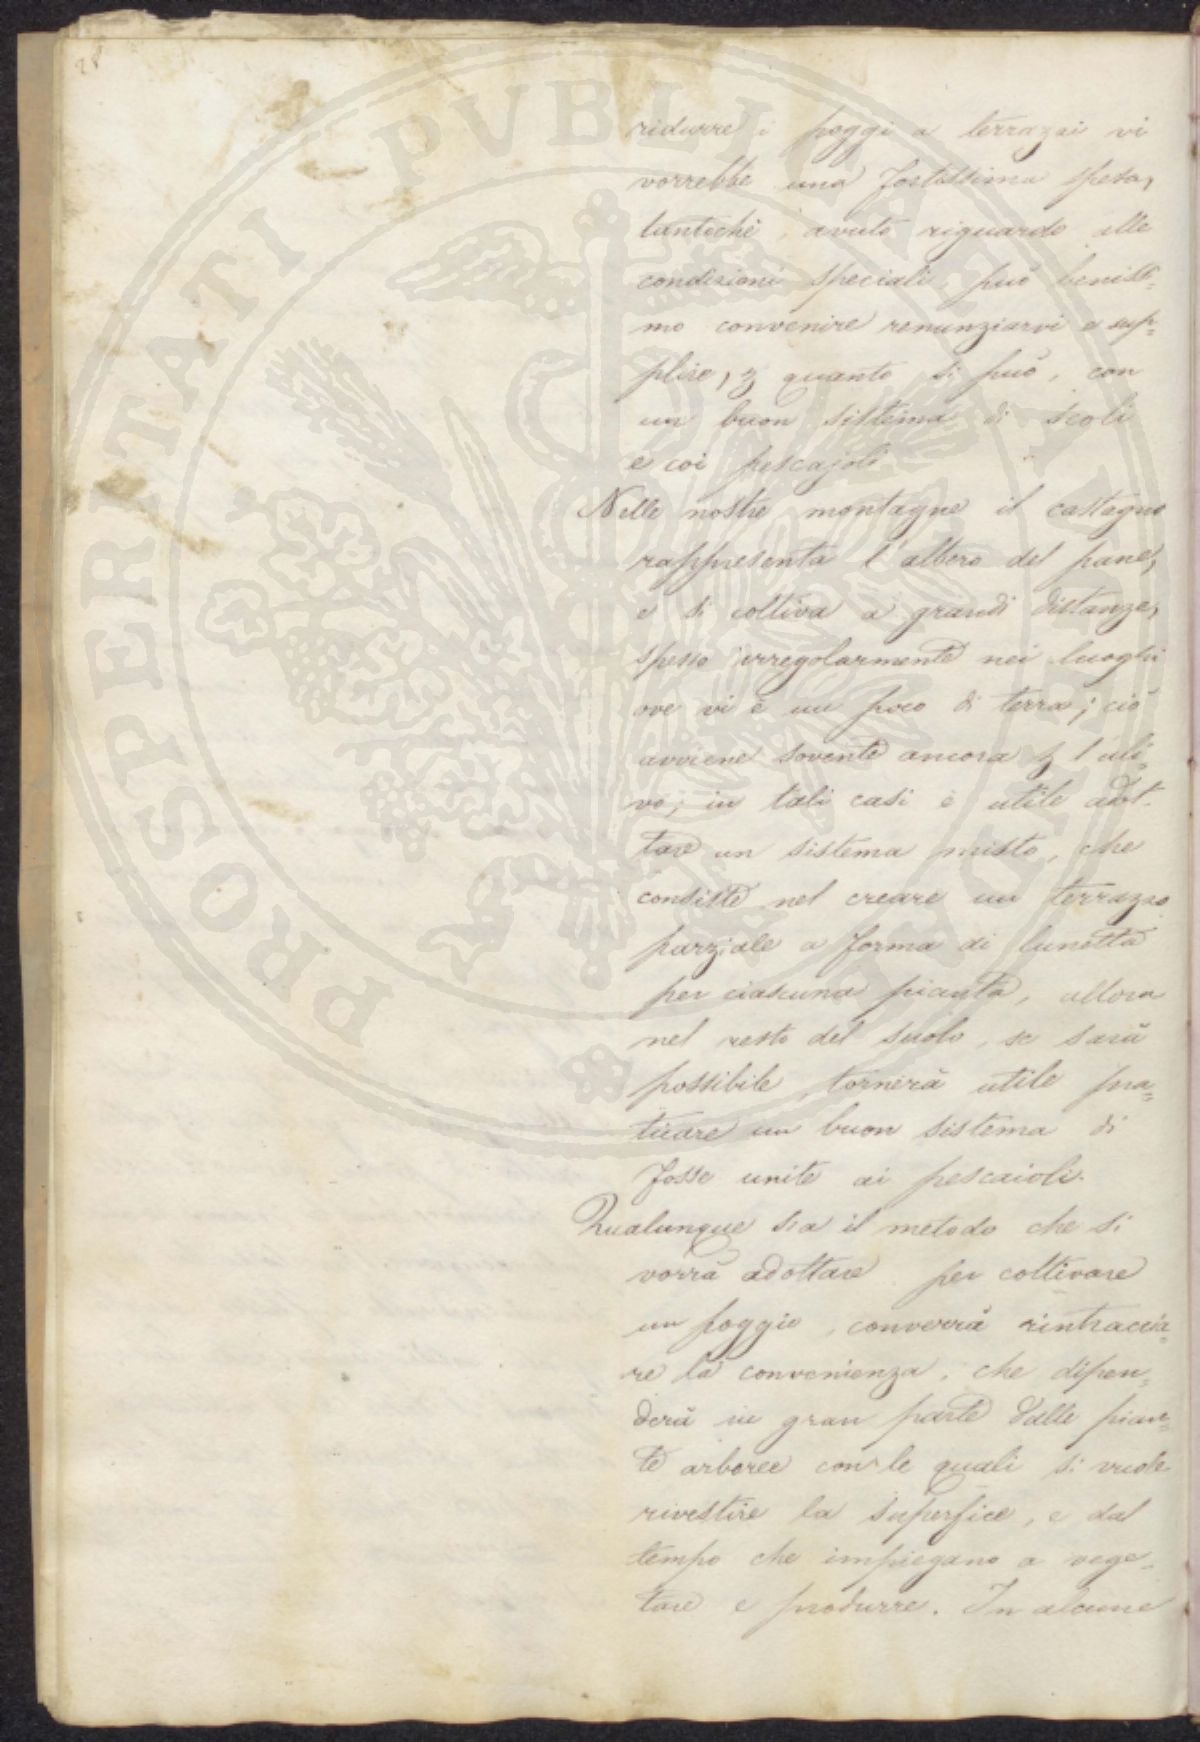 28
PROSPERITATI PVBLICAE AVGENDAE
ridurre i poggi a terrazzi vi
vorrebbe una fortissima spesa,
tantochè, avuto riguardo alle
condizioni speciali, può benissi=
mo convenire renunziarvi e sup=
plire, p quanto si può, con
un buon sistema di scoli
e coi pescajoli
Nelle nostre montagne il castagno
rappresenta l'albero del pane,
e si coltiva a grandi distanze,
spesso irregolarmente nei luoghi
ove vi è un poco di terra; ciò
avviene sovente ancora p l'uli=
vo; in tali casi è utile adot=
tare un sistema misto, che
consiste nel creare un terrazzo
parziale a forma di lunetta
per ciascuna pianta, allora
nel resto del suolo, se sarà
possibile, tornerà utile pra=
ticare un buon sistema di
fosse unite ai pescaioli.
Qualunque sia il metodo che si
vorrà adottare per coltivare
un poggio, converrà rintraccia=
re la convenienza, che dipen=
derà in gran parte dalle pian=
te arboree con le quali si vuole
rivestire la superfice, e dal
tempo che impiegano a vege=
tare e produrre. In alcune